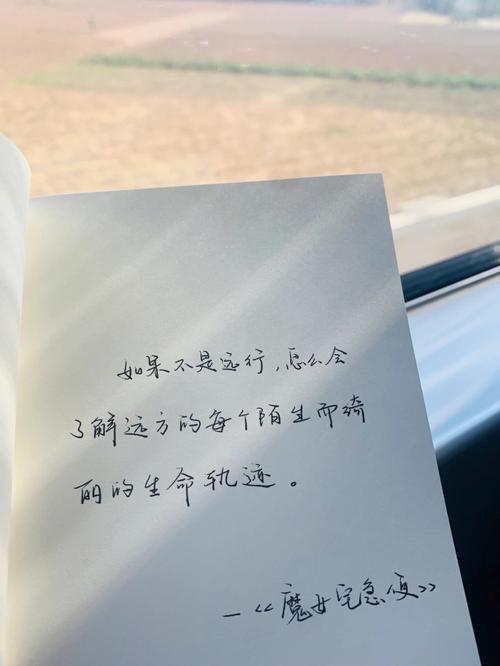 如果不是远行，怎么会
了解远方的每个陌生而绮
丽的生命轨迹。
—《魔女宅急便》